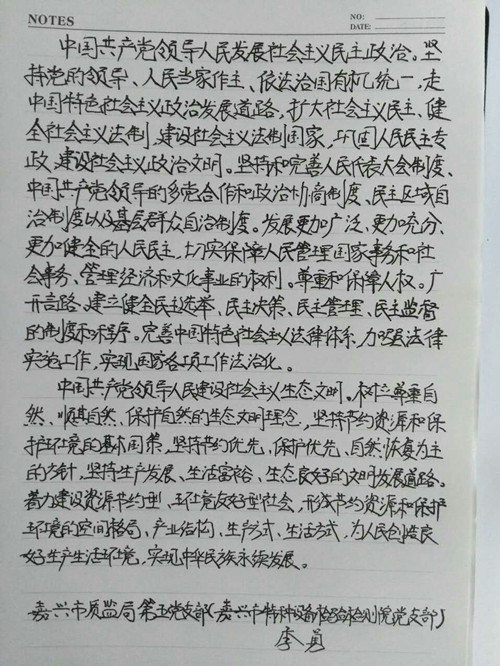 NOTES
NO:
DATE:
中国共产党领导人民发展社会主义民主政治。坚
持党的领导、人民当家作主、依法治国有机统一,走
中国特色社会主义政治发展道路,扩大社会主义民主,健
全社会主义法制,建设社会主义法制国家,巩固人民民主专
政,建设社会主义政治文明。坚持和完善人民代表大会制度、
中国共产党领导的多党合作和政治协商制度、民主区域自
治制度以及基层群众自治制度。发展更加广泛、更加充分、
更加健全的人民民主,切实保障人民管理国家事务和社
会事务、管理经济和文化事业的权利。尊重和保障人权。广
开言路,建立健全民主选举、民主决策、民主管理、民主监督
的制度和程序。完善中国特色社会主义法律体系,加强法律
实施工作,实现国家各项工作法治化。
中国共产党领导人民建设社会主义生态文明。树立尊重自
然、顺其自然、保护自然的生态文明理念,坚持节约资源和保
护环境的基本国策,坚持节约优先、保护优先、自然恢复为主
的方针,坚持生产发展、生活富裕、生态良好的文明发展道路。
着力建设资源节约型、环境友好型社会,形成节约资源和保护
环境的空间格局、产业结构、生产方式、生活方式,为人民创造良
好生产生活环境,实现中华民族永续发展。
嘉兴市质监局第五党支部(嘉兴市特种设备检验检测院党支部)
李勇